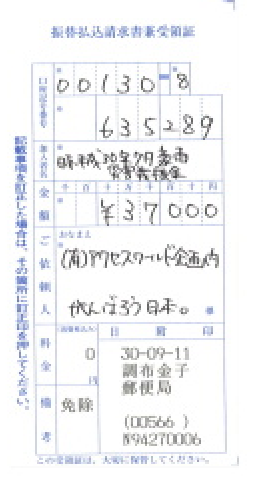 振替払込請求書兼受領証
口座記号番号
00130-8
635289
加入者名
平成30年7月豪雨
災害義援金
金額
千百十万千百十円
¥37000
ご依頼人
おなまえ
(有)アクセスワールド企画内
がんばろう日本。
様
料金
(消費税込み)
0
円
日附印
30-09-11
調布金子
郵便局
(00566 )
N94270006
備考
免除
記載事項を訂正した場合は、その箇所に訂正印を押してください。
この受領証は、大切に保管してください。